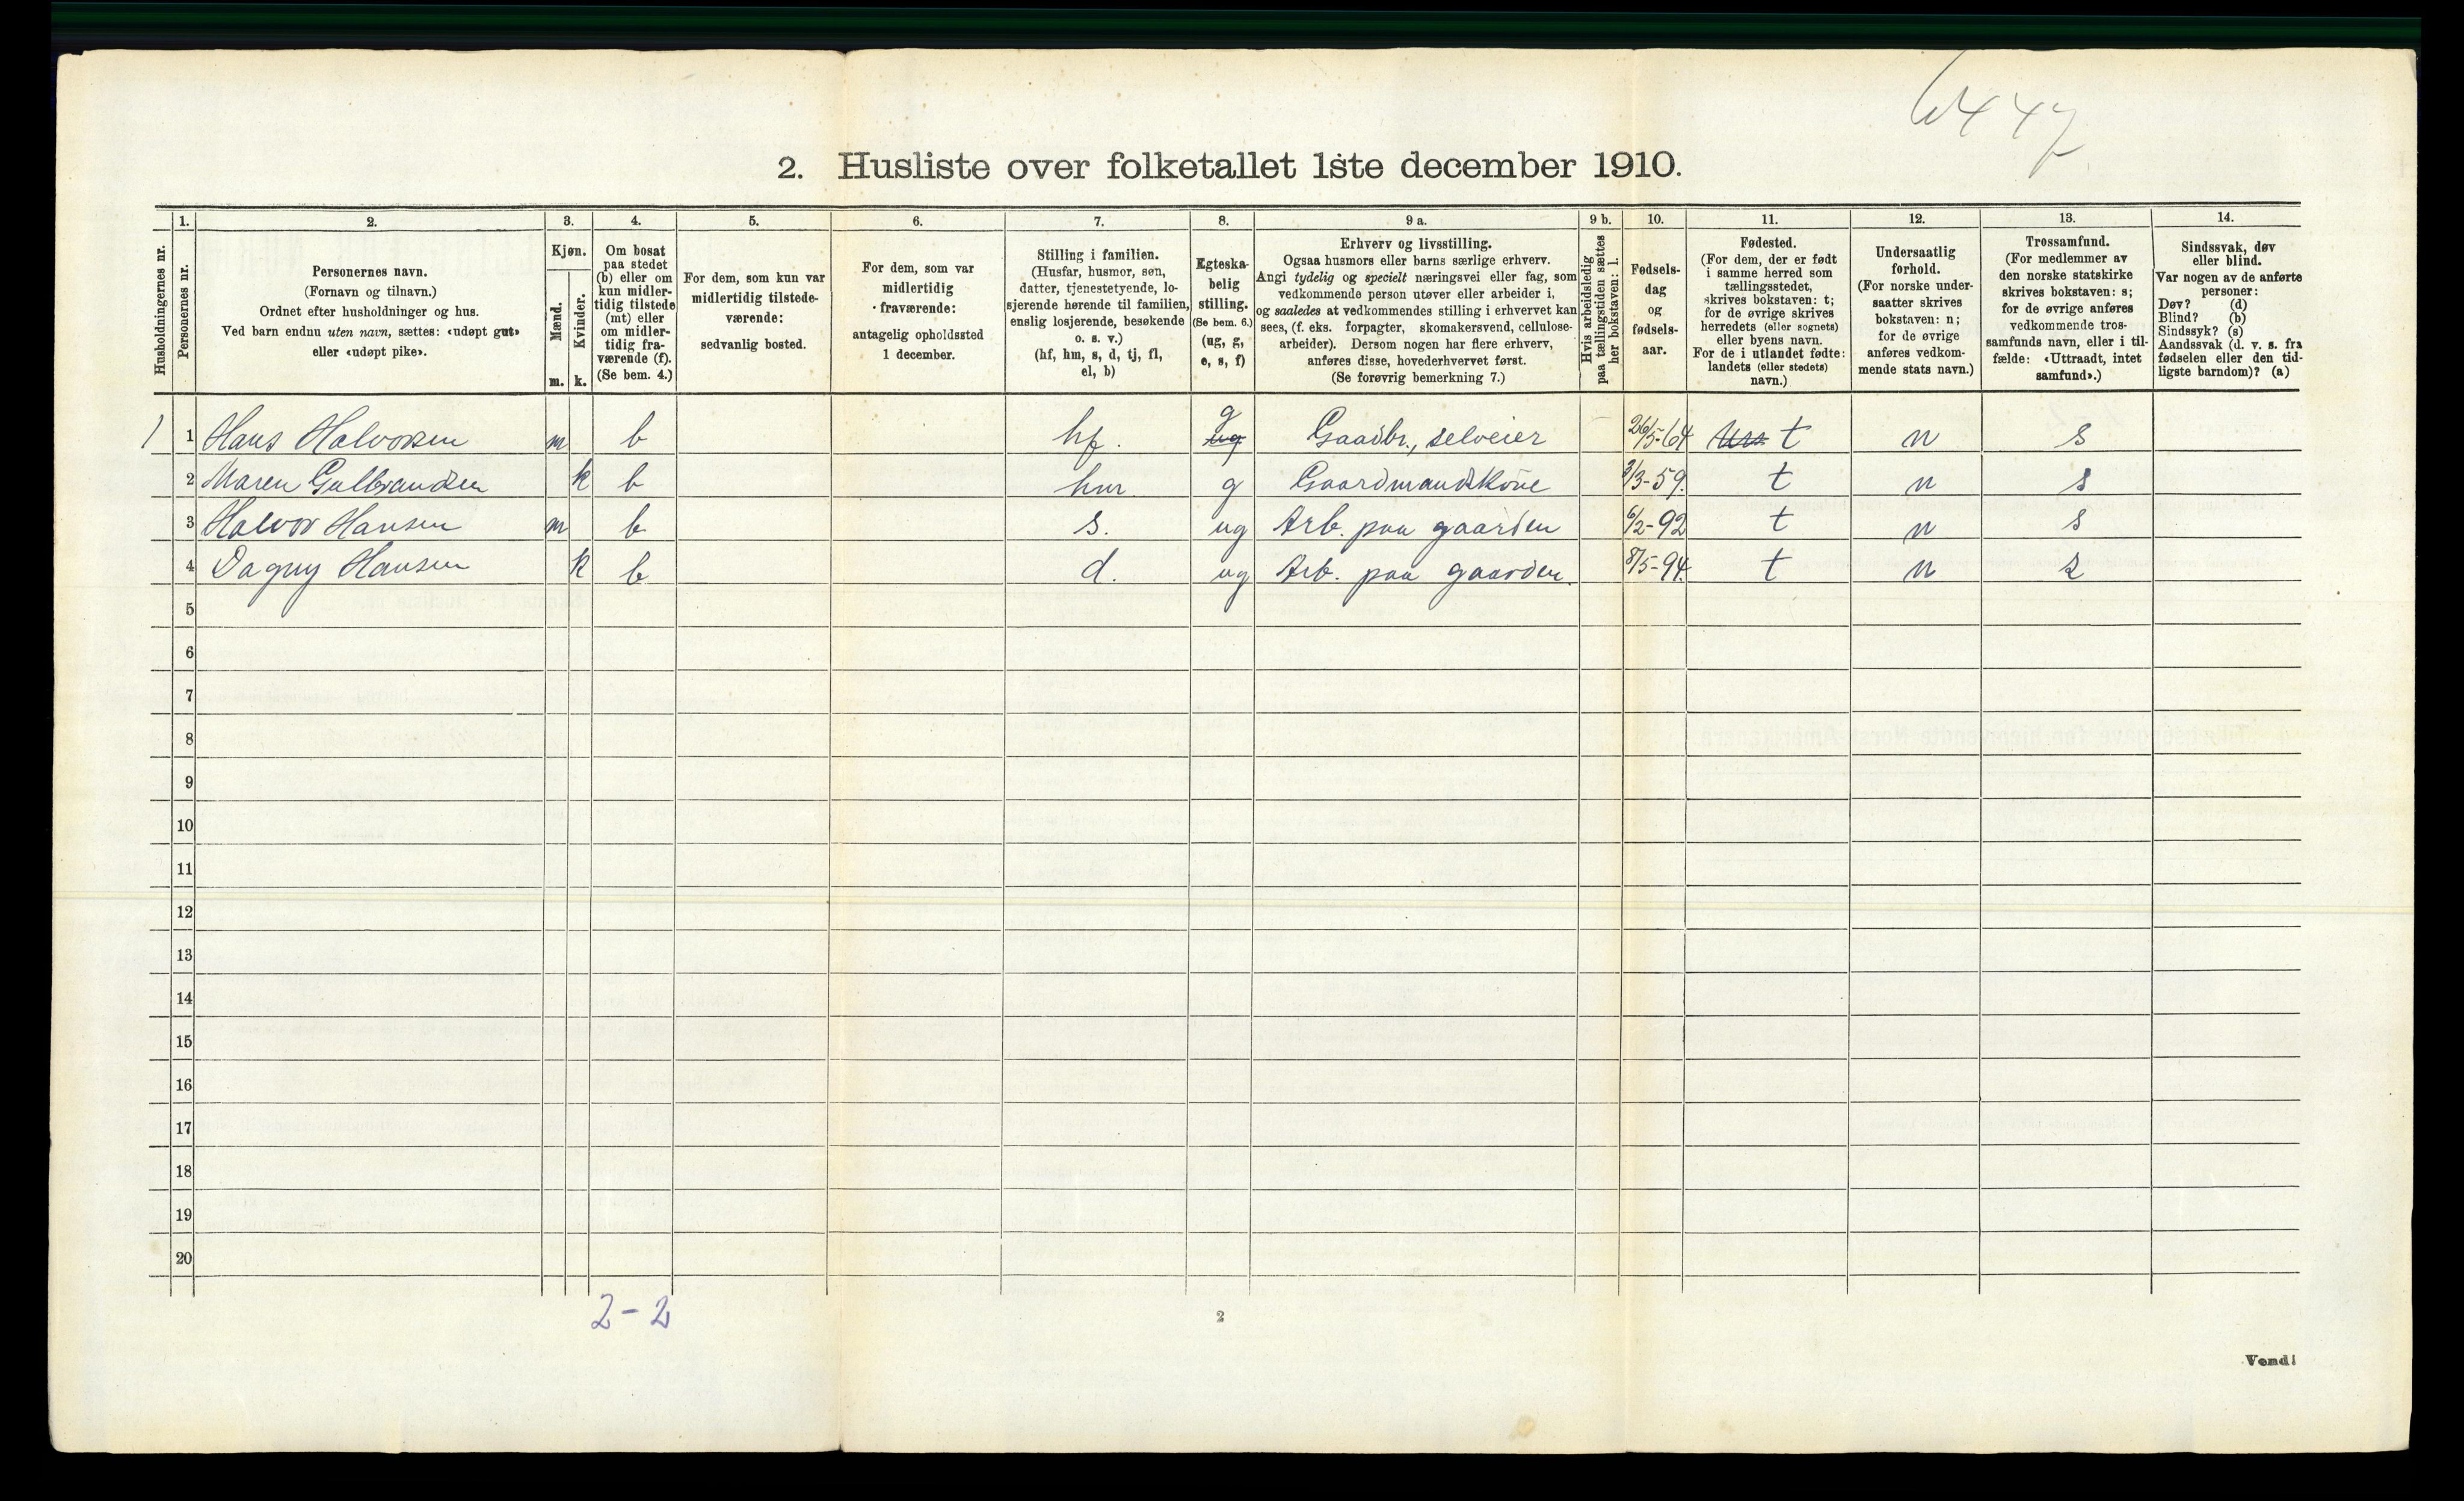 6447
2. Husliste over folketallet 1ste december 1910.
1. 2. 3. 4. 5. 6. 7. 8. 9 a. 9 b. 10. 11. 12. 13. 14.
Husholdningernes nr.
Personernes nr.
Personernes navn.
(Fornavn og tilnavn.)
Ordnet efter husholdninger og hus.
Ved barn endnu uten navn, sættes: «udøpt gut»
eller «udøpt pike».
Kjøn.
Mænd.
Kvinder.
m. k.
Om bosat
paa stedet
(b) eller om
kun midler-
tidig tilstede
(mt) eller
om midler-
tidig fra-
værende (f).
(Se bem. 4.)
For dem, som kun var
midlertidig tilstede-
værende:
sedvanlig bosted.
For dem, som var
midlertidig
fraværende:
antagelig opholdssted
1 december.
Stilling i familien.
(Husfar, husmor, søn,
datter, tjenestetyende, lo-
sjerende hørende til familien,
enslig losjerende, besøkende
o. s. v.)
(hf, hm, s, d, tj, fl,
el, b)
Egteska-
belig
stilling.
(Se bem. 6.)
(ug, g,
e, s, f)
Erhverv og livsstilling.
Ogsaa husmors eller barns særlige erhverv.
Angi tydelig og specielt næringsvei eller fag, som
vedkommende person utøver eller arbeider i,
og saaledes at vedkommendes stilling i erhvervet kan
sees, (f. eks. forpagter, skomakersvend, cellulose-
arbeider). Dersom nogen har flere erhverv,
anføres disse, hovederhvervet først.
(Se forøvrig bemerkning 7.)
Hvis arbeidsledig
paa tællingstiden sættes
her bokstaven: l.
Fødsels-
dag
og
fødsels-
aar.
Fødested.
(For dem, der er født
i samme herred som
tællingsstedet,
skrives bokstaven: t;
for de øvrige skrives
herredets (eller sognets)
eller byens navn.
For de i utlandet fødte:
landets (eller stedets)
navn.)
Undersaatlig
forhold.
(For norske under-
saatter skrives
bokstaven: n;
for de øvrige
anføres vedkom-
mende stats navn.)
Trossamfund.
(For medlemmer av
den norske statskirke
skrives bokstaven: s;
for de øvrige anføres
vedkommende tros-
samfunds navn, eller i til-
fælde: «Uttraadt, intet
samfund».)
Sindssvak, døv
eller blind.
Var nogen av de anførte
personer:
Døv? (d)
Blind? (b)
Sindssyk? (s)
Aandssvak (d. v. s. fra
fødselen eller den tid-
ligste barndom)? (a)
1 1 Hans Halvorsen m b hf. ug g Gaardbr., selveier 26/5-64 t n s
2 Maren Gulbrandsen k b hm. g Gaardmandskone 3/3-59. t n s
3 Halvor Hansen m b s. ug Arb. paa gaarden 6/2-92 t n s
4 Dagny Hansen k b d. ug Arb. paa gaarden. 8/5-94. t n s
5
6
7
8
9
10
11
12
13
14
15
16
17
18
19
20
2-2
2
Vend!